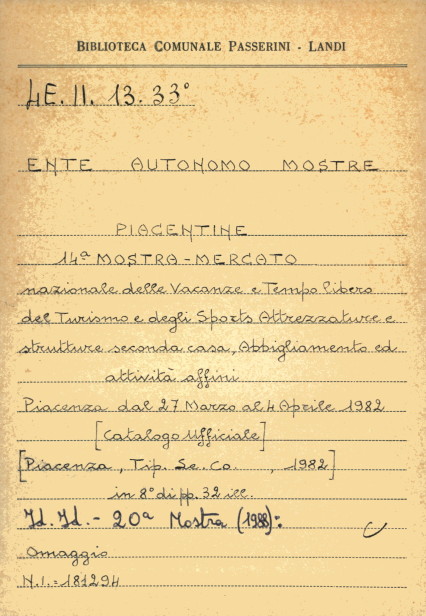 BIBLIOTECA COMUNALE PASSERINI - LANDI
4E. II. 13. 33°
ENTE AUTONOMO MOSTRE
PIACENTINE
14ª MOSTRA-MERCATO
nazionale delle Vacanze e Tempo libero
del Turismo e degli Sports Attrezzature e
strutture seconda casa, Abbigliamento ed
attività affini
Piacenza dal 27 Marzo al 4 Aprile 1982
[Catalogo Ufficiale]
[Piacenza, Tip. Se. Co. , 1982]
in 8° di pp. 32 ill.
Id. Id. - 20ª Mostra (1988):
Omaggio
N.I. = 181294